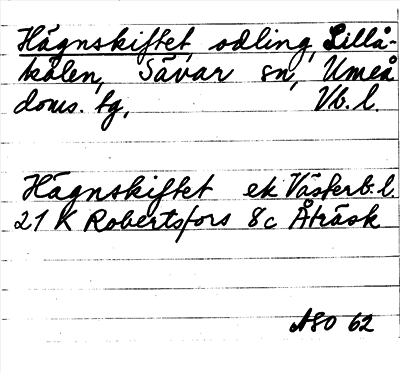 Hägnskiftet, odling, Lillå-
kålen, Sävar sn, Umeå
doms. tg, Vb. l.
Hägnskiftet ek Västerb. l.
21 K Robertsfors 8c Åträsk
ASO 62